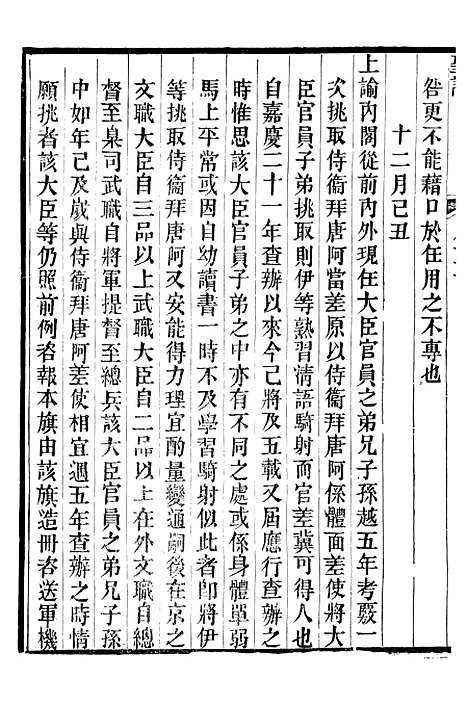 咎更不能藉口於任用之不專也
十二月己丑
上諭內閣從前內外現任大臣官員之弟兄子孫越五年考覈一
次挑取侍衞拜唐阿當差原以侍衞拜唐阿係體面差使將大
臣官員子弟挑取則伊等熟習淸語騎射而官差冀可得人也
自嘉慶二十一年查辦以來今已將及五載又屆應行查辦之
時惟思該大臣官員子弟之中亦有不同之處或係身體單弱
馬上平常或因自幼讀書一時不及學習騎射似此者卽將伊
等挑取侍衞拜唐阿又安能得力理宜酌量變通嗣後在京之
文職大臣自三品以上武職大臣自二品以上在外文職自總
督至臬司武職自將軍提督至總兵該大臣官員之弟兄子孫
中如年已及歲與侍衞拜唐阿差使相宜遇五年查辦之時情
願挑者該大臣等仍照前例咨報本旗由該旗造冊咨送軍機